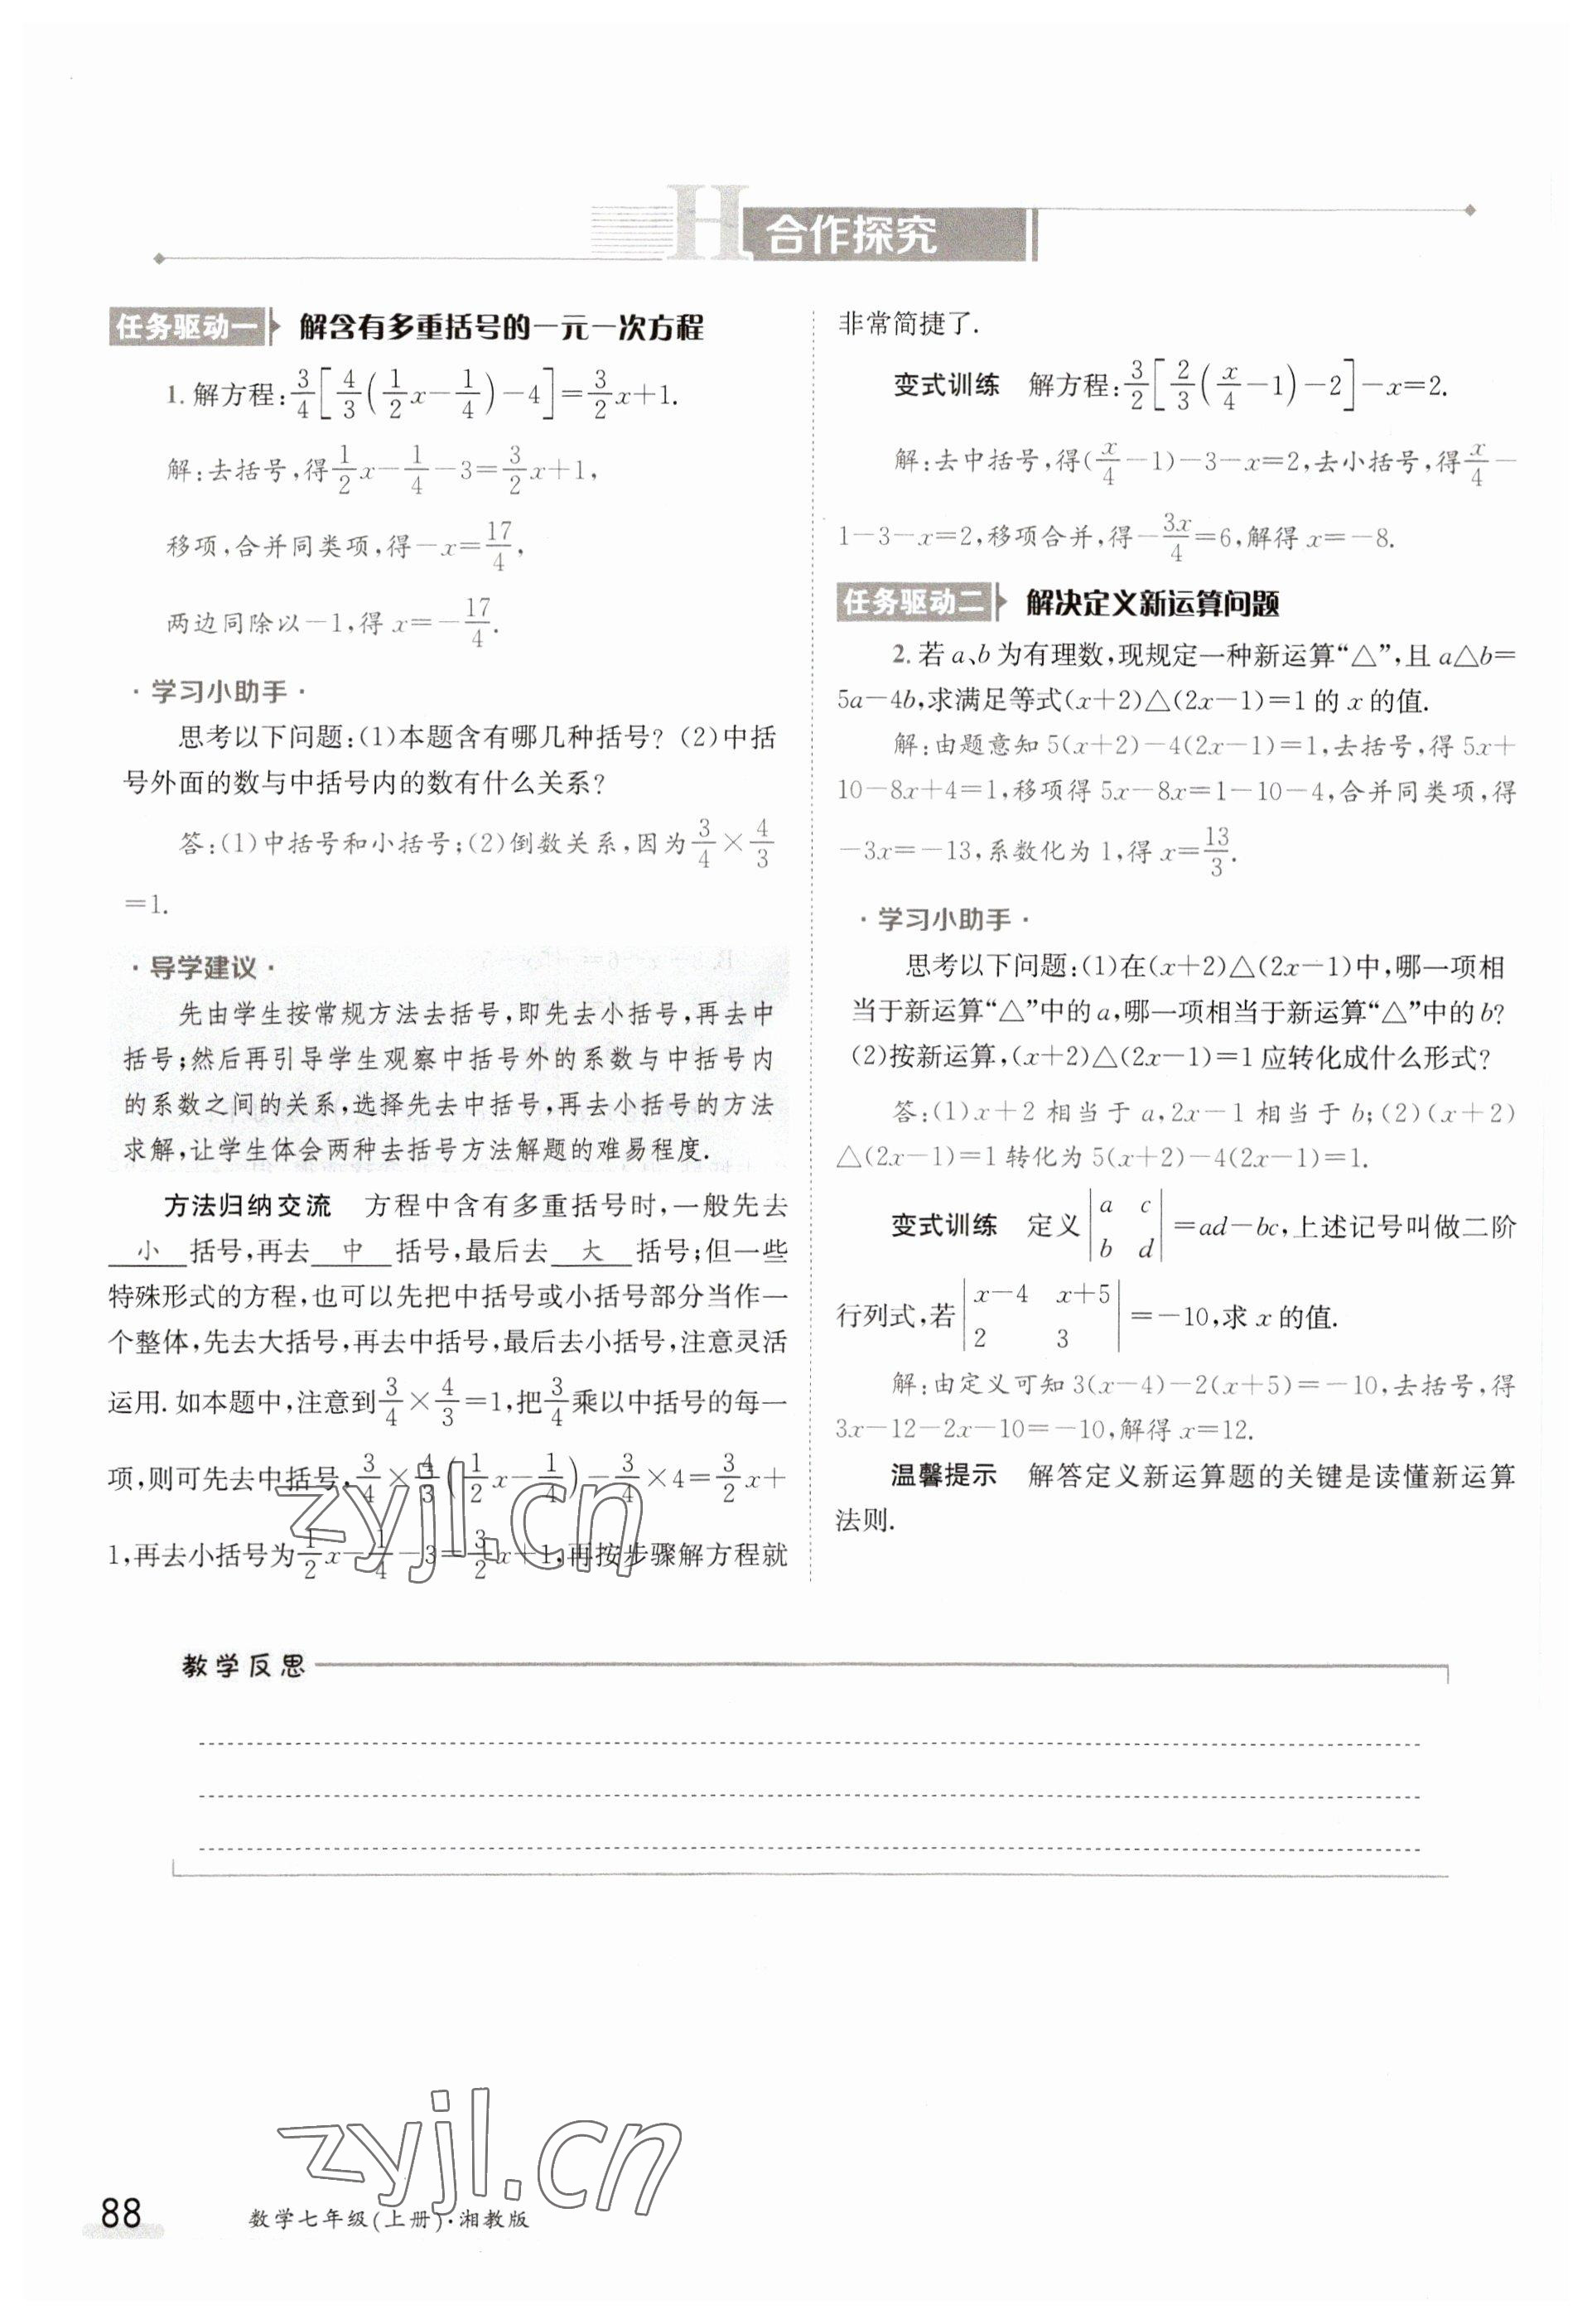 H 合作探究
任务驱动一 解含有多重括号的一元一次方程
1. 解方程:3/4[4/3(1/2x-1/4)-4]=3/2x+1.
解:去括号,得1/2x-1/4-3=3/2x+1,
移项,合并同类项,得-x=17/4,
两边同除以-1,得 x=-17/4.
·学习小助手·
思考以下问题:(1)本题含有哪几种括号? (2)中括
号外面的数与中括号内的数有什么关系?
答:(1)中括号和小括号;(2)倒数关系,因为3/4×4/3
=1.
·导学建议·
先由学生按常规方法去括号,即先去小括号,再去中
括号;然后再引导学生观察中括号外的系数与中括号内
的系数之间的关系,选择先去中括号,再去小括号的方法
求解,让学生体会两种去括号方法解题的难易程度.
方法归纳交流 方程中含有多重括号时,一般先去
小 括号,再去 中 括号,最后去 大 括号;但一些
特殊形式的方程,也可以先把中括号或小括号部分当作一
个整体,先去大括号,再去中括号,最后去小括号,注意灵活
运用. 如本题中,注意到3/4×4/3=1,把3/4乘以中括号的每一
项,则可先去中括号,3/4×4/3(1/2x-1/4)-3/4×4=3/2x+
1,再去小括号为1/2x-1/4-3=3/2x+1,再按步骤解方程就
非常简捷了.
变式训练 解方程:3/2[2/3(x/4-1)-2]-x=2.
解:去中括号,得(x/4-1)-3-x=2,去小括号,得x/4-
1-3-x=2,移项合并,得-3x/4=6,解得 x=-8.
任务驱动二 解决定义新运算问题
2. 若 a、b 为有理数,现规定一种新运算“△”,且 a△b=
5a-4b,求满足等式(x+2)△(2x-1)=1 的 x 的值.
解:由题意知 5(x+2)-4(2x-1)=1,去括号,得 5x+
10-8x+4=1,移项得 5x-8x=1-10-4,合并同类项,得
-3x=-13,系数化为 1,得 x=13/3.
·学习小助手·
思考以下问题:(1)在(x+2)△(2x-1)中,哪一项相
当于新运算“△”中的 a,哪一项相当于新运算“△”中的 b?
(2)按新运算,(x+2)△(2x-1)=1 应转化成什么形式?
答:(1)x+2 相当于 a,2x-1 相当于 b;(2)(x+2)
△(2x-1)=1 转化为 5(x+2)-4(2x-1)=1.
变式训练 定义 |a c; b d|=ad-bc,上述记号叫做二阶
行列式,若 |x-4 x+5; 2 3|=-10,求 x 的值.
解:由定义可知 3(x-4)-2(x+5)=-10,去括号,得
3x-12-2x-10=-10,解得 x=12.
温馨提示 解答定义新运算题的关键是读懂新运算
法则.
zyjl.cn
教学反思
zyjl.cn
88 数学七年级(上册)·湘教版